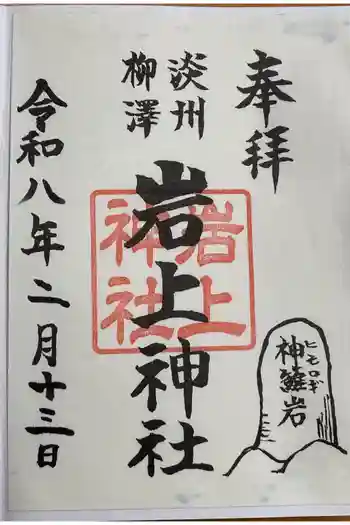 奉拝
淡州
柳澤
岩上神社
岩上
神社
令和八年二月十三日
ヒモロギ
神籬岩